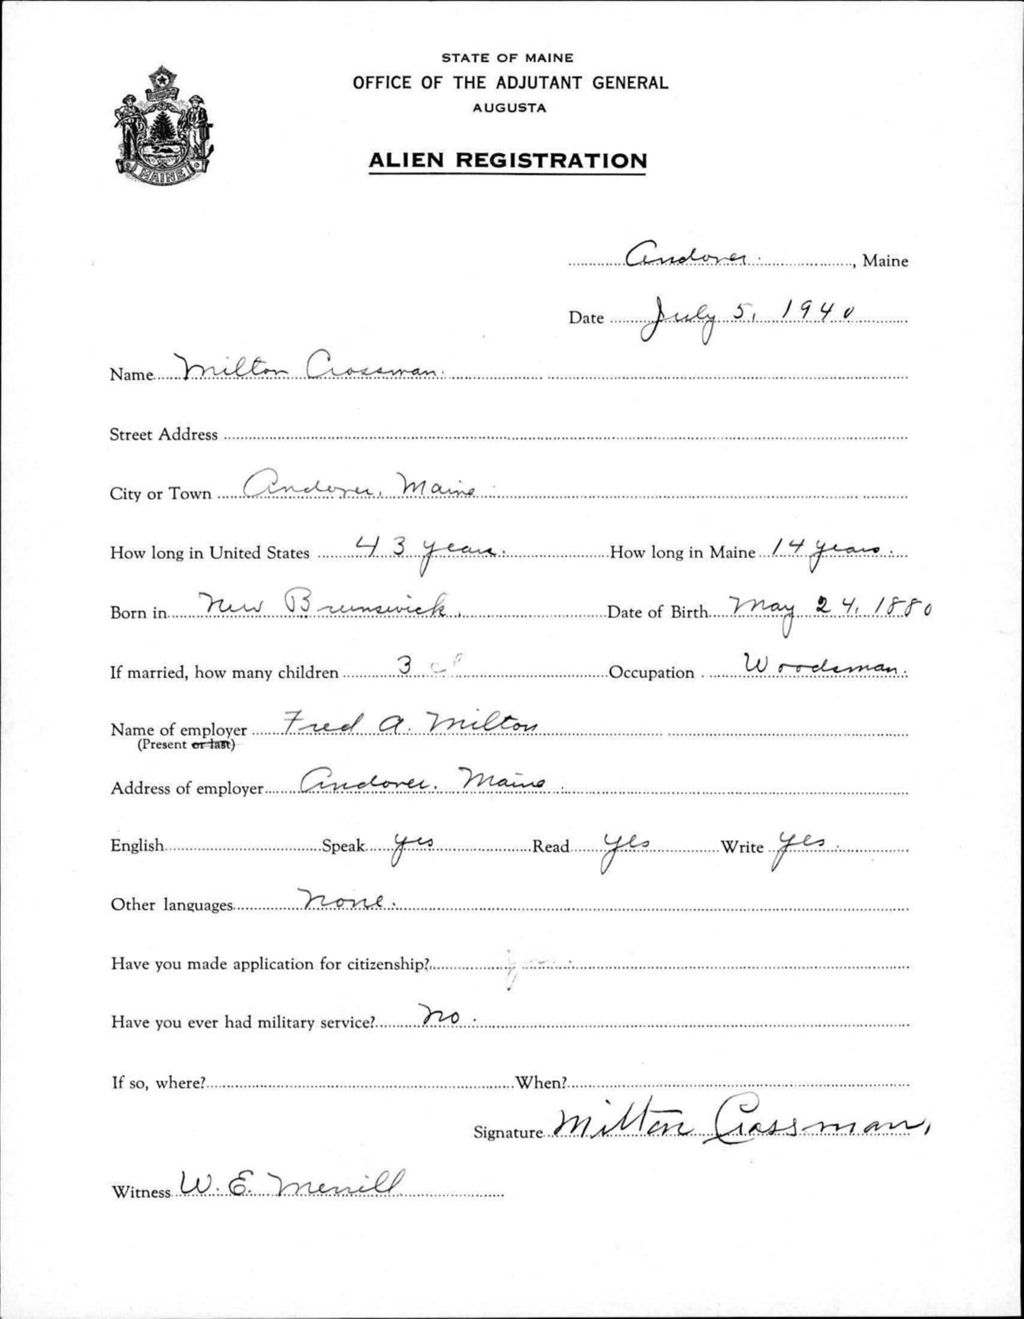 STATE OF MAINE
OFFICE OF THE ADJUTANT GENERAL
AUGUSTA
ALIEN REGISTRATION
MAINE
Andover, Maine
Date July 5, 1940
Name Milton Crossman.
Street Address
City or Town Andover, Maine
How long in United States 43 years. How long in Maine 14 years.
Born in New Brunswick. Date of Birth May 24, 1880
If married, how many children 3 Occupation Woodsman.
Name of employer Fred A. Milton
(Present or last)
Address of employer Andover. Maine
English Speak yes Read yes Write yes.
Other languages None.
Have you made application for citizenship?
Have you ever had military service? No.
If so, where? When?
Signature Milton Crossman,
Witness W. E. Merrill